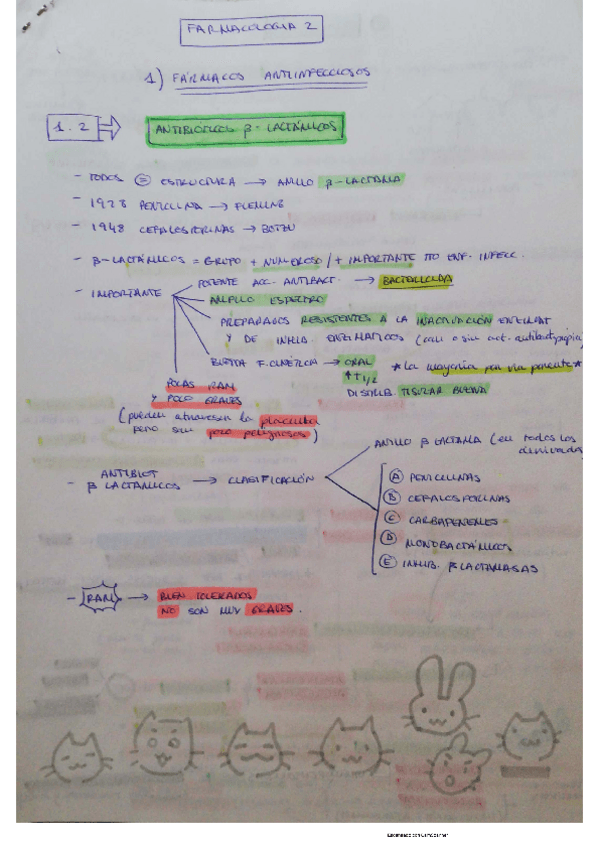 FARMACOLOGIA 2
1) FÁRMACOS ANTIINFECCIOSOS
1.2
ANTIBIÓTICOS β-LACTÁMICOS
- TODOS = ESTRUCTURA → ANILLO β-LACTAMA
- 1928 PENICILINA → FLEMING
- 1948 CEFALOSPORINAS →
- β-LACTÁMICOS = GRUPO + NUMEROSO / + IMPORTANTE TTO ENF. INFECC.
- IMPORTANTE
POTENTE ACC. ANTIBACT. → BACTERICIDA
AMPLIO ESPECTRO
PREPARADOS RESISTENTES A LA INACTIVACIÓN ENZIMAT
Y DE INHIB. ENZIMÁTICOS (con o sin act. antibiot propia)
BUENA F.CINÉTICA → ORAL *la mayoría por vía parenté*
↑↑ t 1/2
DISTRIB. TISULAR BUENA
POCAS RAM
Y POCO GRAVES
(pueden atravesar la placenta
pero son poco peligrosos)
- ANTIBIOT β LACTÁMICOS → CLASIFICACIÓN
ANILLO β LACTAMA (en todos los derivados
A PENICILINAS
B CEFALOSPORINAS
C CARBAPENEMES
D MONOBACTÁMICOS
E INHIB. β LACTAMASAS
- RAM → BIEN TOLERADOS
NO SON MUY GRAVES.
Escaneado con CamScanner